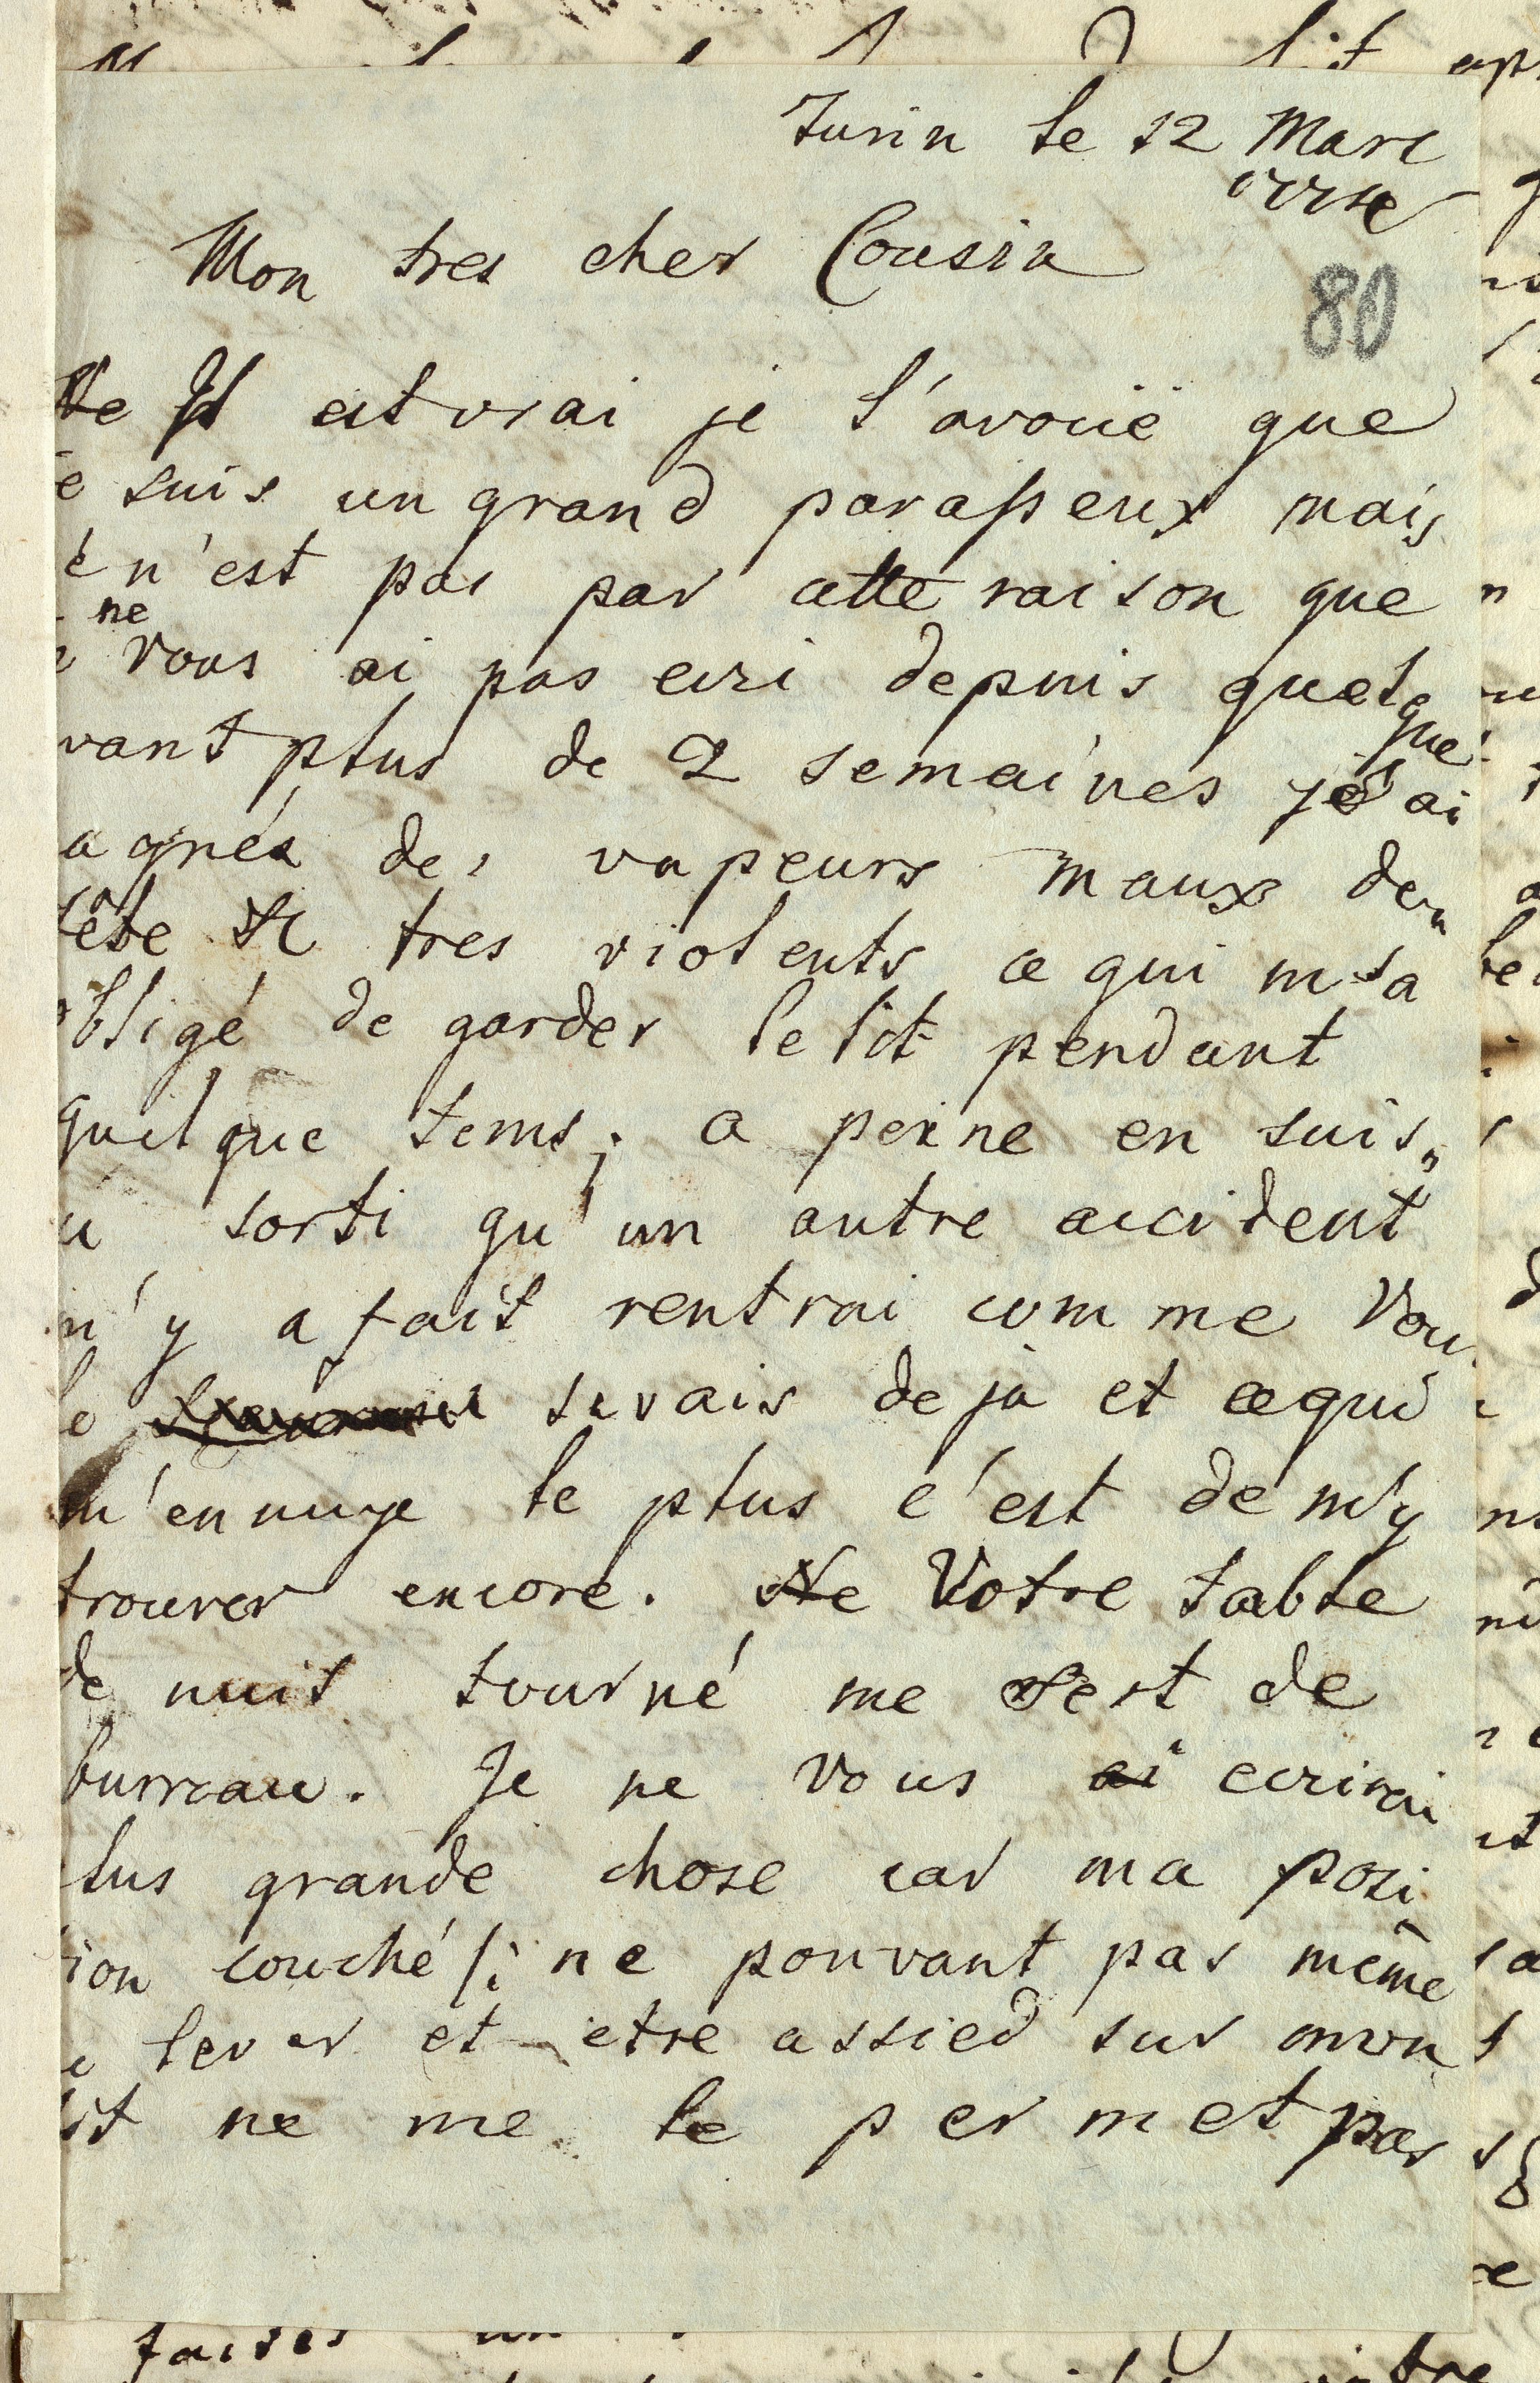 Turin le 12 Mars
Mon tres cher Cousin
80
Il est vrai je l'avoüe que
je suis un grand parasseux mais
n'est pas par cette raison que
ne
vous ai pas ecri depuis quelque
vant plus de 2 semaines j'ai
agnés des vapeurs maux de
tête tres violents ce qui m'a
obligé de garder le lit pendant
quelque tems; a peine en suis
sorti qu'un autre accident
m'y a fait rentrai comme Vous
le savais deja et ce qui
m'ennuye le plus c'est de m'y
trouver encore. Votre table
de nuit tourné me sert de
burreau. Je ne vous ecrirai
plus grande chose car ma posi
tion couché /: ne pouvant pas même
lever et etre assied sur mon
lit ne me le permet pas